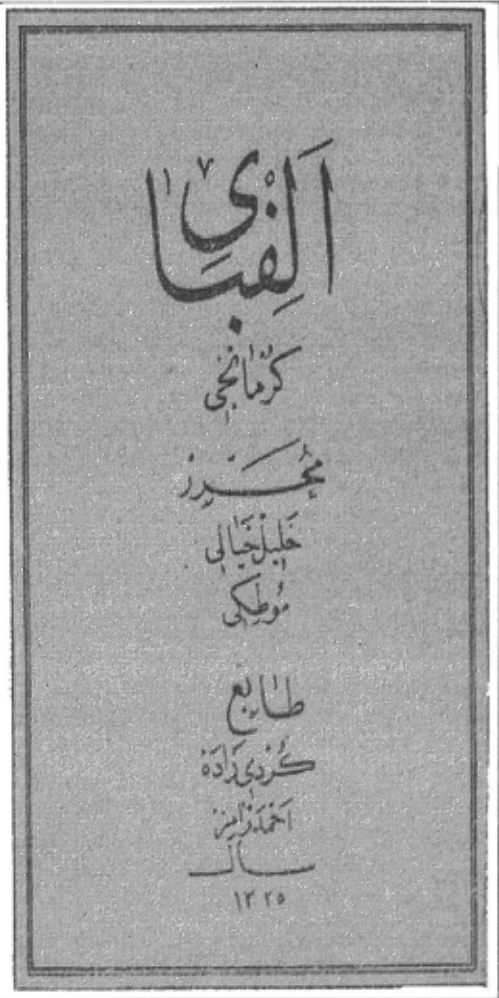 اَلِفْبَایٛ
کُرْمَانْجِی
مُحَرِّرْ
خَلِیلْ خَیَالِی
مُوطْکِی
طَابِعْ
کُرْدِی زَادَهْ
اَحْمَدْ رَامِزْ
سال
١٣٢٥